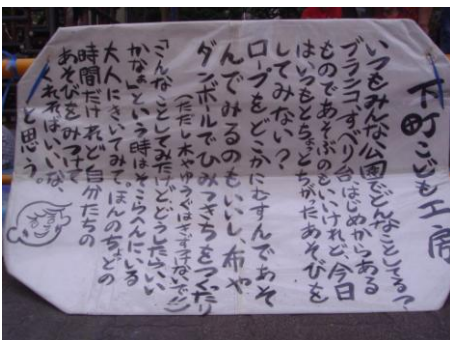 下町こども工房
いつもみんな公園でどんなことしてる？
ブランコ、すべり台はじめからある
ものであそぶのもいいけれど、今日
はいつもとちょとちがったあそびを
してみない？
ロープをどこかにむすんであそ
んでみるのもいいし、布や
ダンボールでひみつきちをつくったり
（ただし木やゆうぐはきずつけないで）
「こんなことしてみたけどどうしたらいい
かなぁ」という時はそこらへんにいる
大人にきいてみて。ほんのちょとの
時間だけれど自分たちの
あそびをみつけて
くれればいいな、
と思う。